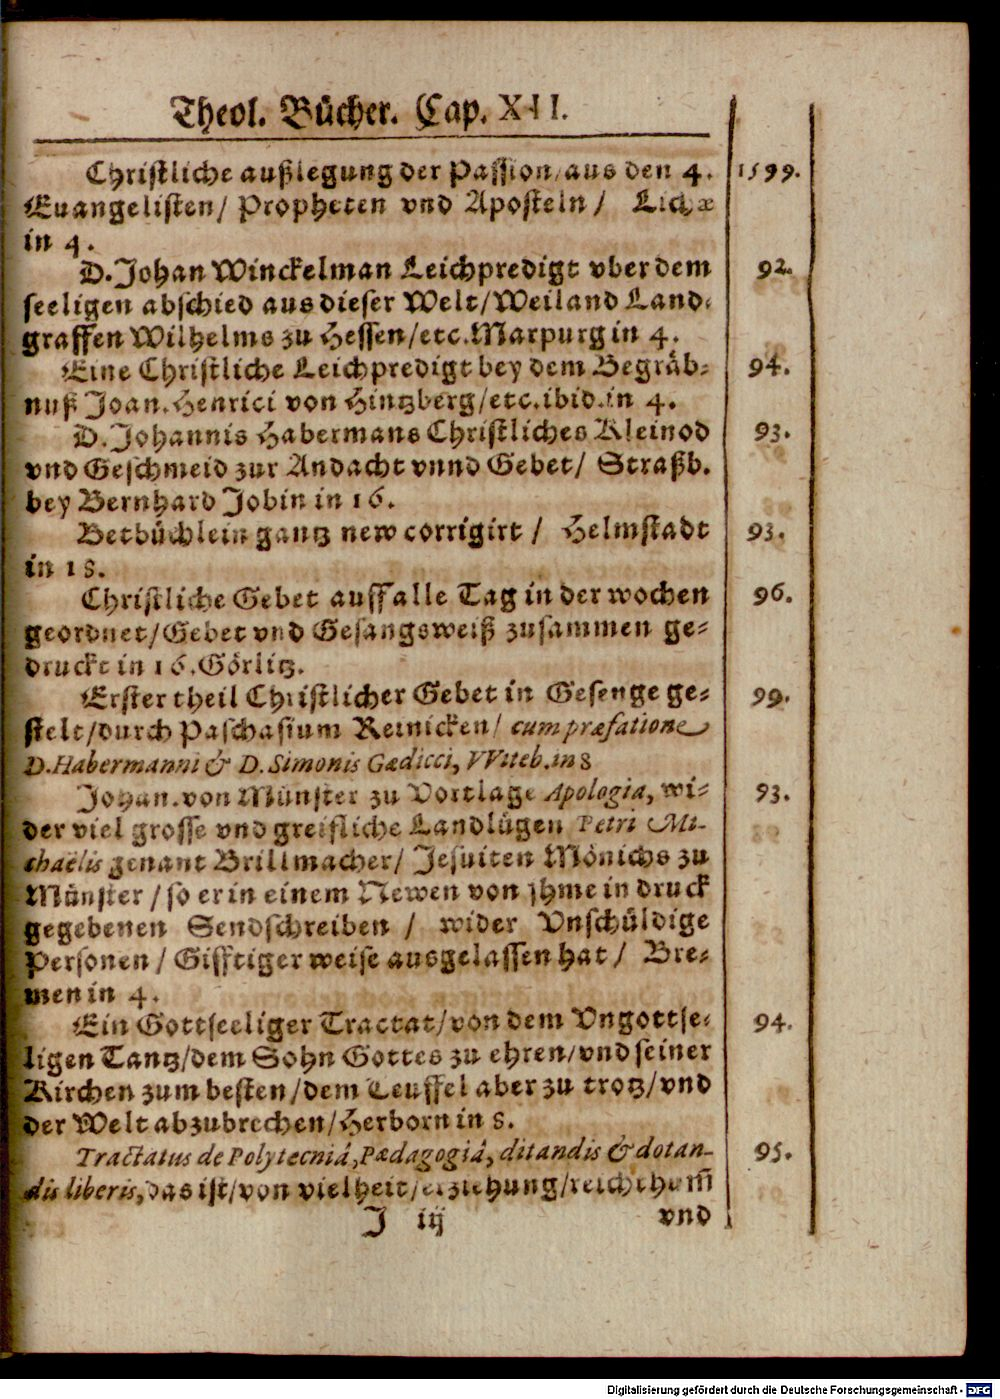 Theol. Bücher. Cap. XII.
Christliche außlegung der Passion/aus den 4. 1599.
Euangelisten/ Propheten vnd Aposteln/ Lichæ
in 4.
D. Johan Winckelman Leichpredigt vber dem 92.
seeligen abschied aus dieser Welt/Weiland Land-
graffen Wilhelms zu Hessen/etc. Marpurg in 4.
Eine Christliche Leichpredigt bey dem Begräb- 94.
nuß Joan. Henrici von Hintzberg/etc. ibid. in 4.
D. Johannis Habermans Christliches Kleinod 93.
vnd Geschmeid zur Andacht vnnd Gebet/ Straßb.
bey Bernhard Jobin in 16.
Betbüchlein gantz new corrigirt/ Helmstadt 93.
in 18.
Christliche Gebet auff alle Tag in der wochen 96.
geordnet/Gebet vnd Gesangsweiß zusammen ge-
druckt in 16. Görlitz.
Erster theil Christlicher Gebet in Gesenge ge- 99.
stelt/durch Paschasium Reinicken/ cum præfatione
D. Habermanni & D. Simonis Gædicci, VViteb. in 8
Johan. von Münster zu Vortlage Apologia, wi- 93.
der viel grosse vnd greifliche Landlügen Petri Mi-
chaëlis genant Brillmacher/ Jesuiten Mönichs zu
Münster/so er in einem Newen von jhme in druck
gegebenen Sendschreiben/ wider Vnschüldige
Personen/ Gifftiger weise ausgelassen hat/ Bre-
men in 4.
Ein Gottseeliger Tractat/von dem Vngottse- 94.
ligen Tantz/dem Sohn Gottes zu ehren/vnd seiner
Kirchen zum besten/dem Teuffel aber zu trotz/vnd
der Welt abzubrechen/Herborn in 8.
Tractatus de Polytecniâ, Pædagogiâ, ditandis & dotan- 95.
dis liberis, das ist/von vielheit/erziehung/reichthum̃
J iij vnd
Digitalisierung gefördert durch die Deutsche Forschungsgemeinschaft - DFG